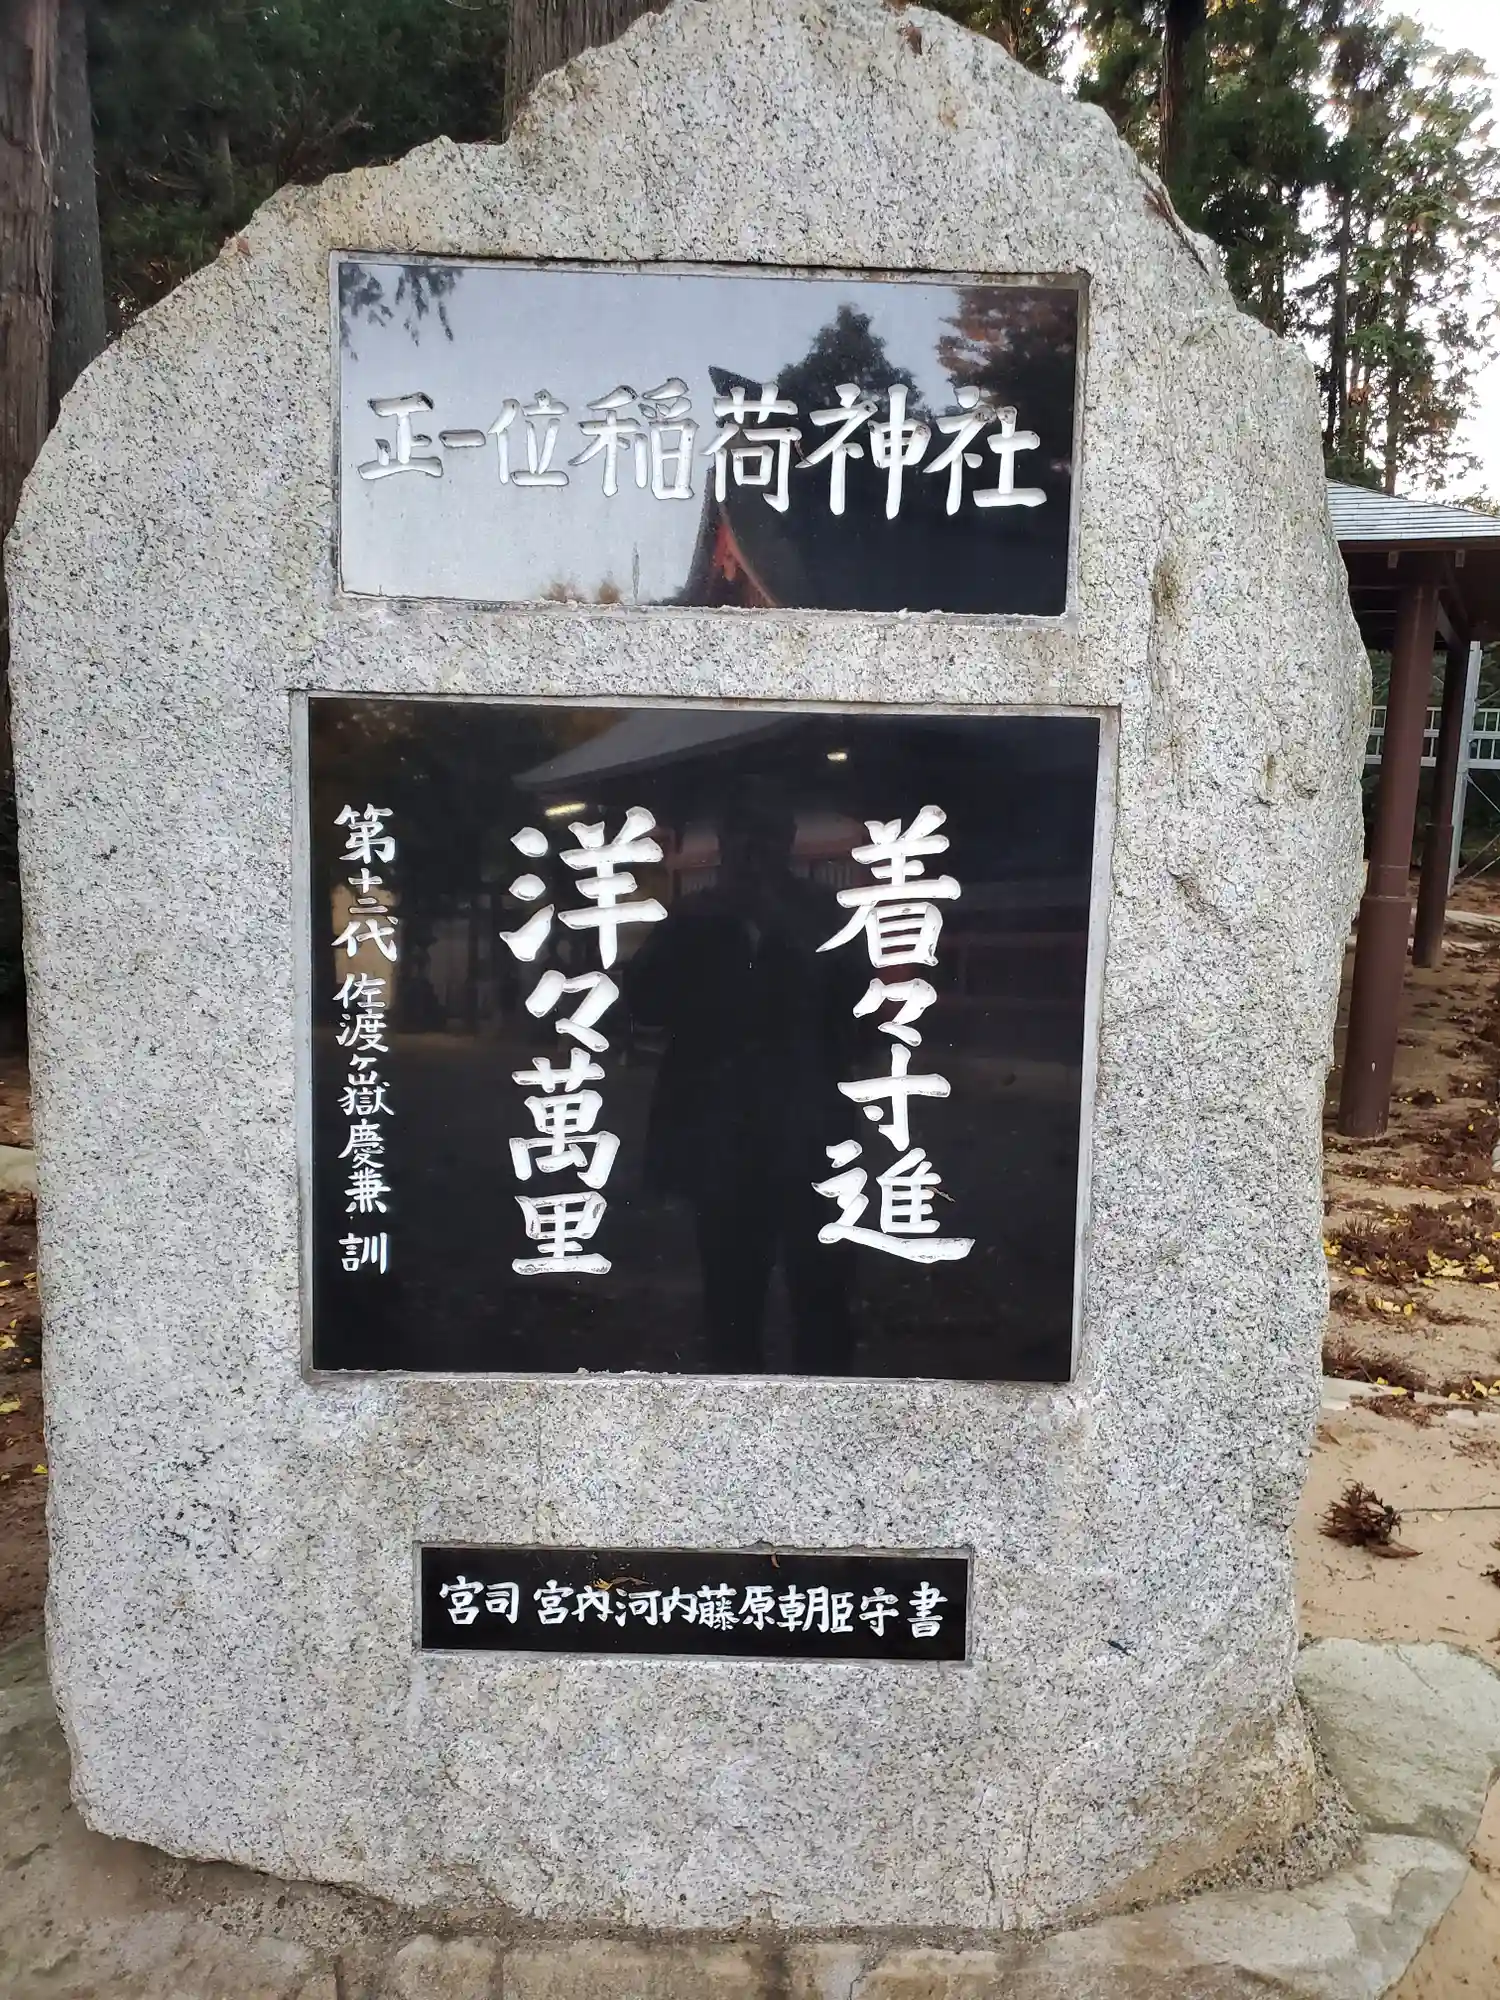 正一位稲荷神社
着々寸進
洋々萬里
第十三代 佐渡ヶ嶽慶兼 訓
宮司 宮内河内藤原朝臣守書